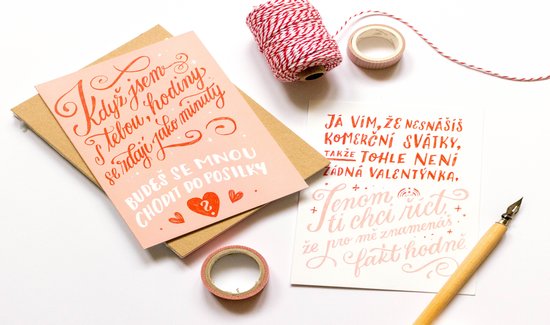 Když jsem
s tebou, hodiny
se zdají jako minuty
BUDEŠ SE MNOU
CHODIT DO POSILKY
?
JÁ VÍM, ŽE NESNÁŠÍŠ
KOMERČNÍ SVÁTKY,
TAKŽE TOHLE NENÍ
ŽÁDNÁ VALENTÝNKA.
Jenom
ti chci říct,
že pro mě znamenáš
fakt hodně